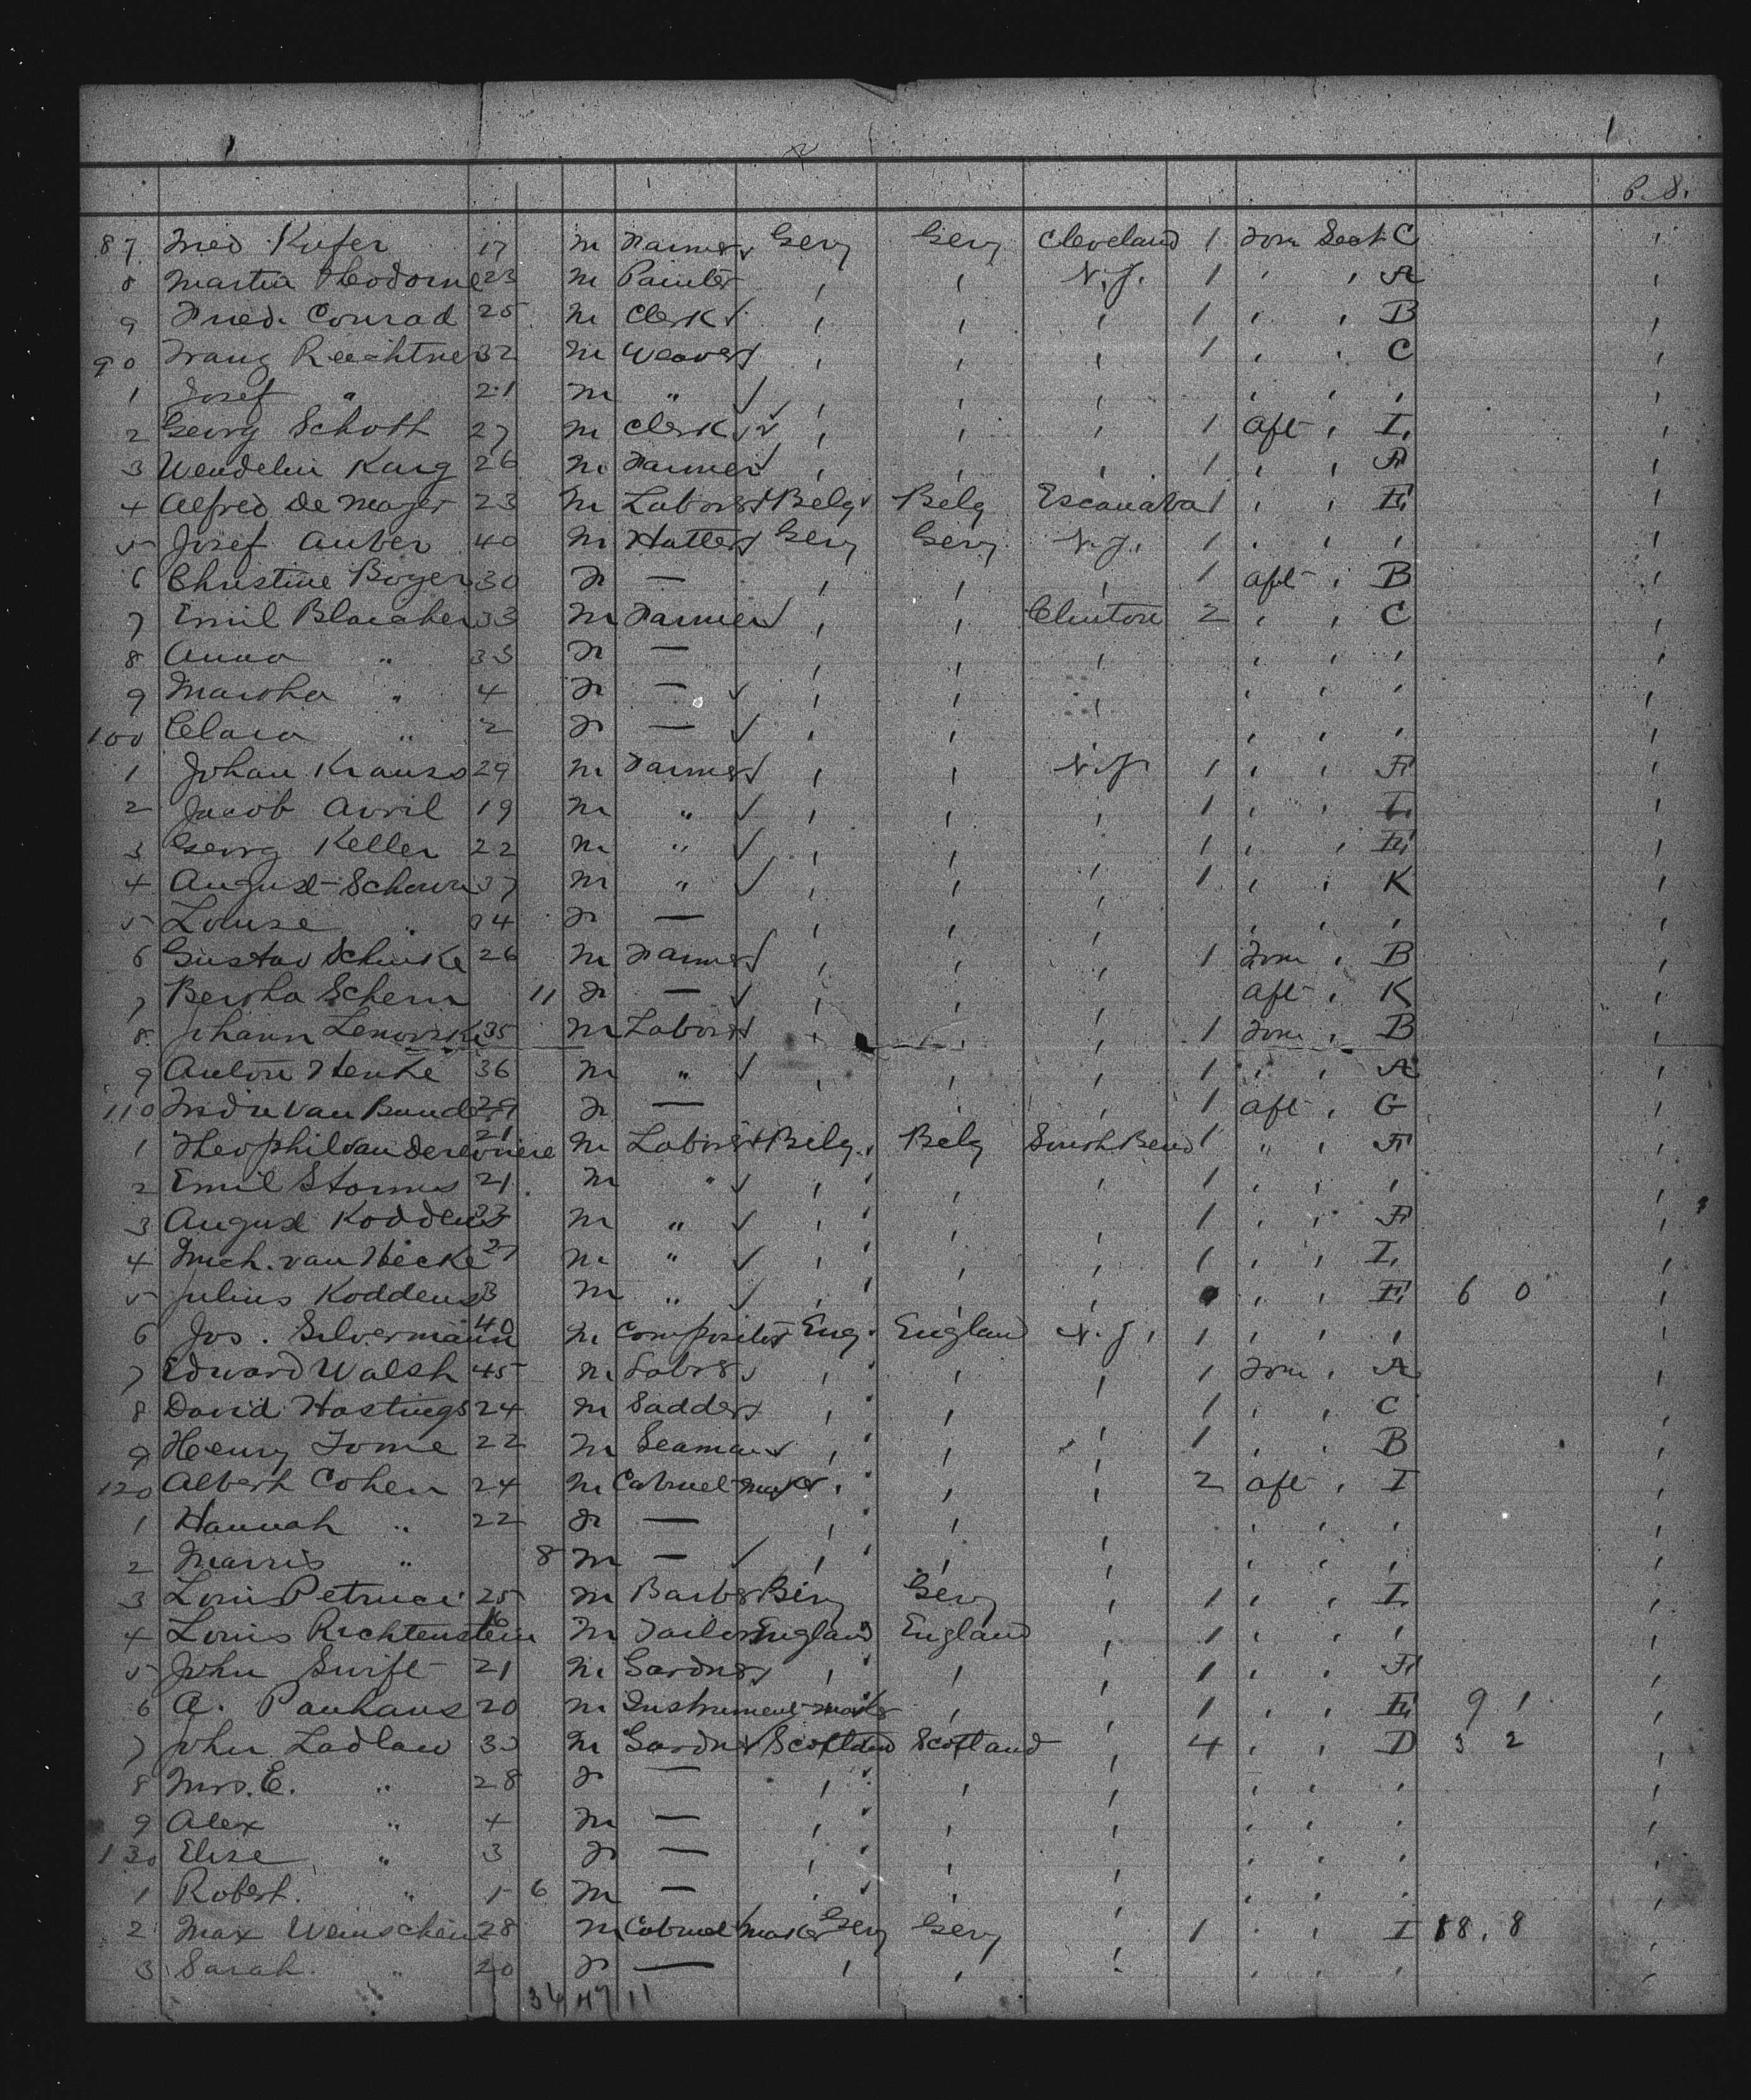 P. S.
87 Fred Kufer 17 m Farmer Gery Gery Cleveland 1 Forw Sect C
8 Martin Theodorne 23 m Painter , , N.J. 1 , , A
9 Fried. Conrad 25 m Clerk , , , 1 , , B
90 Franz Reichtner 32 m Weaver , , , 1 , , C
1 Josef " 21 m " , , , , , ,
2 Georg Schott 27 m Clerk , , , 1 aft , I
3 Wendelin Karg 26 m Farmer , , , 1 , , F
4 Alfred De Mayer 23 m Laborer Belg Belg Escanaba 1 , , E
5 Josef Auber 40 m Hatter Gery Gery N.J. 1 , , ,
6 Christine Boyer 30 F — , , , 1 aft , B
7 Emil Blaecher 33 m Farmer , , Clinton 2 , , C
8 Anna " 33 F — , , , , , ,
9 Martha " 4 F — , , , , , ,
100 Clara " 2 F — , , , , ,
1 Johan Krauss 29 m Farmer , , N.J. 1 , , F
2 Jacob Avril 19 m " , , , 1 , ,
3 Georg Keller 22 m " , , , 1 , , E
4 August Schown 37 m " , , , 1 , , K
5 Louise " 34 F — , , , , , ,
6 Gustav Schinke 26 m Farmer , , , 1 Forw , B
7 Bertha Schern 11 F — , , , aft , K
8 Johann Lenorski 35 m Laborer , , , 1 Forw , B
9 Anton Henke 36 m " , , , 1 , , A
110 van 29 F — , , 1 aft , G
1 Theophil 21 m Laborer Belg. Belg South Bend 1 " , F
2 Emil Storms 21 m " , , , 1 , , ,
3 August Koddens 33 m " , , , 1 , , F
4 Mich. van Hecke 27 m " , , , 1 , , I
5 Julius Koddens 3 m " , , , , , E 6 0
6 Jos. Silvermann 40 m Compositor Eng. England N.J. 1 , , ,
7 Edward Walsh 45 m Labor , , , 1 Forw , A
8 David Hastings 24 m Sadder , , , 1 , , C
9 Henry Tome 22 m Seaman , , , 1 , , B
120 Albert Cohen 24 m Cabinet maker , , , 2 aft , I
1 Hannah " 22 F — , , , , ,
2 Marris " 8 m — , , , , , ,
3 Louis Petruci 25 m Barber Gery Gery , 1 , , I
4 Louis Richtenstein 16 m Tailor England England , 1 , , ,
5 John Swift 21 m Gardner , , , 1 , , F
6 A. Panhans 20 m Instrument maker , , 1 , , E 9 1
7 John Ladlaw 33 m Gardner Scotland Scotland , 4 , , D 3 2
8 Mrs. E. " 28 F — , , , , , ,
9 Alex " 4 m — , , , , , ,
130 Elise " 3 F — , , , , , ,
1 Robert. " 1 6 m — , , , , , ,
2 Max Weinschen 28 m Cabinet maker Gery Gery 1 , , I 18, 8
3 Sarah. " 20 F — , , , , , ,
36 47 11